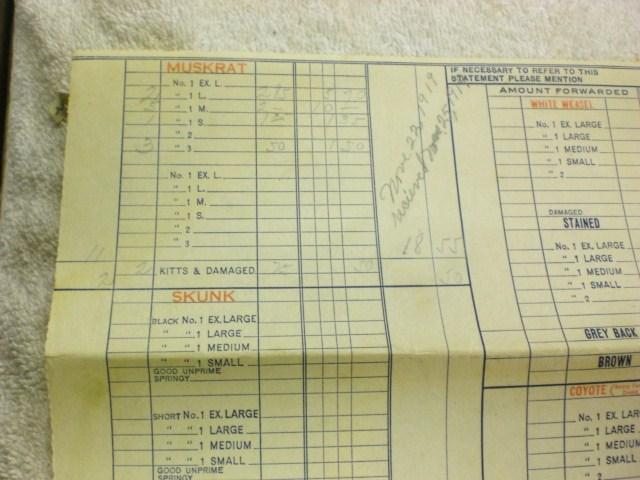 MUSKRAT
No. 1 EX. L.
2 " 1 L. 2 65 5 30
" 1 M. 10
1 " 1 S. 1 35 1 35
" 2
3 " 3 50 1 50
No. 1 EX. L.
" 1 L.
" 1 M.
" 1 S.
" 2
" 3
11
18 55
2 2 KITTS & DAMAGED 25 50 50
Nov 22, 1919
received Nov 25, 1919
SKUNK
BLACK No. 1 EX. LARGE
" " 1 LARGE
" " 1 MEDIUM
" " 1 SMALL
GOOD UNPRIME
SPRINGY
SHORT No. 1 EX. LARGE
" " 1 LARGE
" " 1 MEDIUM
" " 1 SMALL
GOOD UNPRIME
SPRINGY
IF NECESSARY TO REFER TO THIS
STATEMENT PLEASE MENTION
AMOUNT FORWARDED
WHITE WEASEL
No. 1 EX. LARGE
" 1 LARGE
" 1 MEDIUM
" 1 SMALL
" 2
DAMAGED
STAINED
No. 1 EX. LARGE
" 1 LARGE
" 1 MEDIUM
" 1 SMALL
" 2
GREY BACK
BROWN
COYOTE
No. 1 EX. LAR
" 1 LARG
" 1 MEDIU
" 1 SMAL
" 2